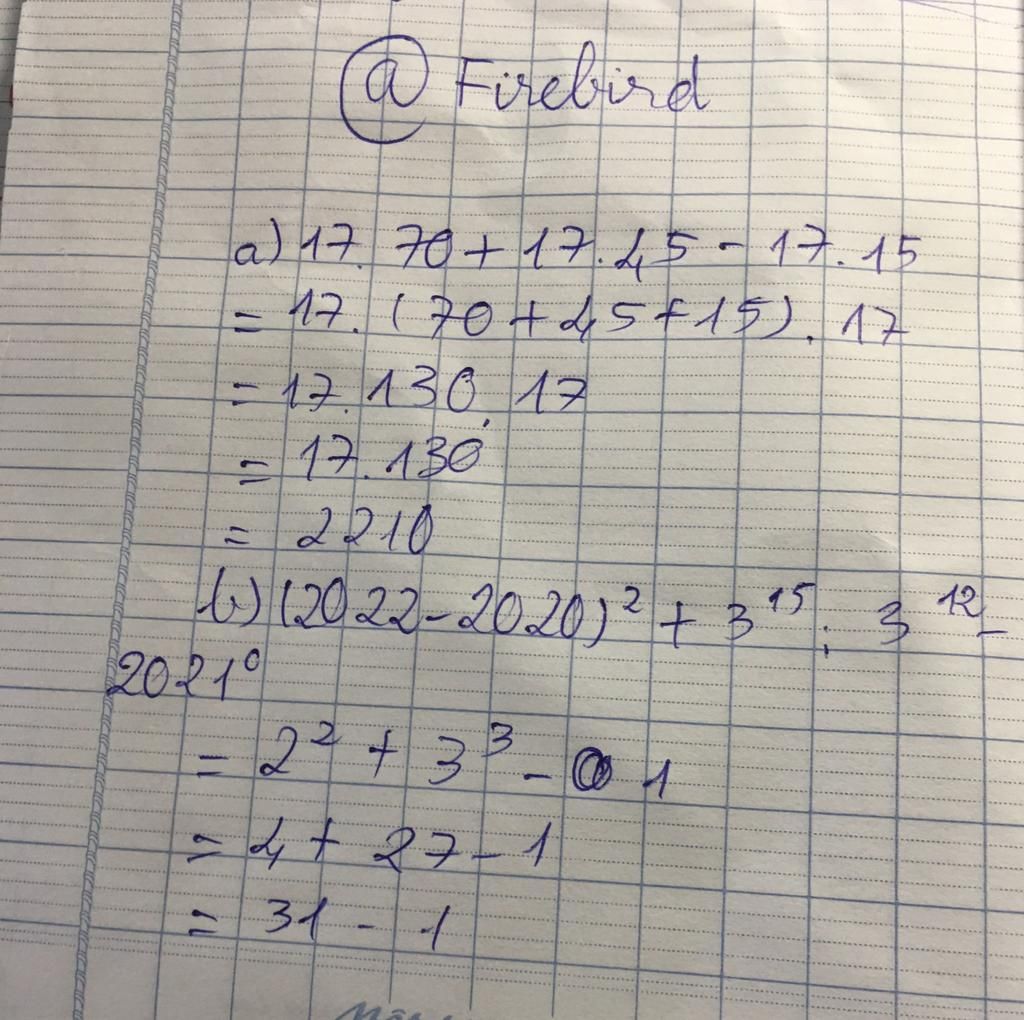 @ Firebird
a) 17. 70 + 17.45 - 17.15
= 17. (70 + 45 + 15). 17
= 17.130. 17
= 17.130
= 2210
b) (2022 - 2020)² + 3¹⁵ : 3¹² -
2021⁰
= 2² + 3³ - 1
= 4 + 27 - 1
= 31 - 1